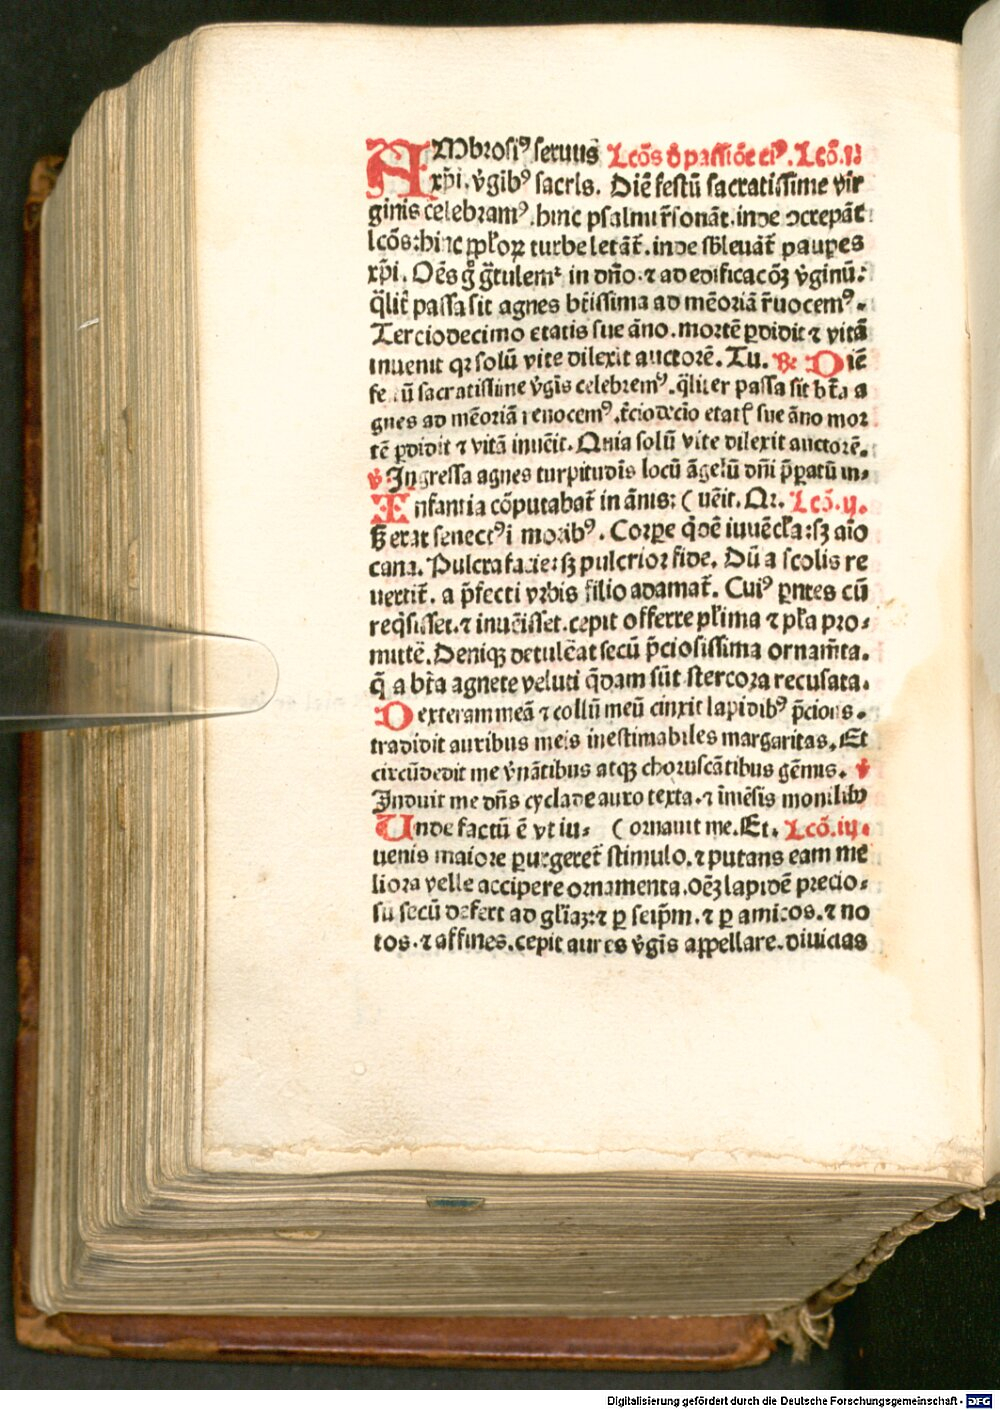 AMbrosiꝰ seruus Lcōs d̄ passiōe eiꝰ. Lcō. i
xp̄i. v̓gibꝰ sacris. Diē festū sacratissime vir
ginis celebramꝰ. hinc psalmi r̄sonāt. inde ↄcrepāt
lcōs: hinc pplo℞ turbe letāt̄. inde sbleuāt̄ paupes
xp̄i. Oēs g̊ gr̄tulemᷣ in dn̄o. ⁊ ad edificacōꝫ v̓ginū:
q̄lit̄ passa sit agnes bt̄issima ad mēoriā r̄uocemꝰ.
Terciodecimo etatis sue āno. mortē ꝑdidit ⁊ vitā
inuenit qꝛ solū vite dilexit auctorē. Tu. ℞ Diē
festū sacratissime v̓gīs celebremꝰ. q̄liter passa sit bt̄a a
gnes ad mēoriā reuocemꝰ. t̄ciodecīo etatꝭ sue āno mor
tē ꝑdidit ⁊ vitā inuēit. Quia solū vite dilexit auctorē.
v̓ Ingressa agnes turpitudīs locū āgelū dn̄i p̄ꝑatū in⸗
Infantia cōputabat̄ in ānis: ( uēit. Qꝛ. Lcō. ij.
ß erat senectꝰi moribꝰ. Corꝑe q̄dē iuuēcl̄a: sꝫ aīo
cana. Pulcra facie: sꝫ pulcrior fide. Dū a scolis re
uertit̄. a p̄fecti vrbis filio adamat̄. Cuiꝰ ꝑntes cū
reqͥsisset. ⁊ inuēisset. cepit offerre pl̄ima ⁊ pl̄a pro⸗
mittē. Deniqꝫ detulēat secū p̄ciosissima ornam̄ta.
q̄ a bt̄a agnete veluti q̄dam sūt stercora recusata.
Dexteram meā ⁊ collū meū cinxit lapidibꝰ p̄ciosis.
tradidit auribus meis inestimabiles margaritas. Et
circūdedit me v̓nātibus atqꝫ choruscātibus gēmis. v̓
Induit me dn̄s cyclade auro texta. ⁊ īmēsis monilibꝰ
Unde factū ē vt iu⸗ ( ornauit me. Et. Lcō. iij.
uenis maiore ꝑurgeret̄ stimulo. ⁊ putans eam me
liora velle accipere ornamenta. oēꝫ lapidē precio⸗
sū secū defert ad gl̄iaꝫ: ⁊ ꝑ seip̄m. ⁊ ꝑ amicos. ⁊ no
tos. ⁊ affines. cepit aures v̓gīs appellare. diuicias
Digitalisierung gefördert durch die Deutsche Forschungsgemeinschaft - DFG